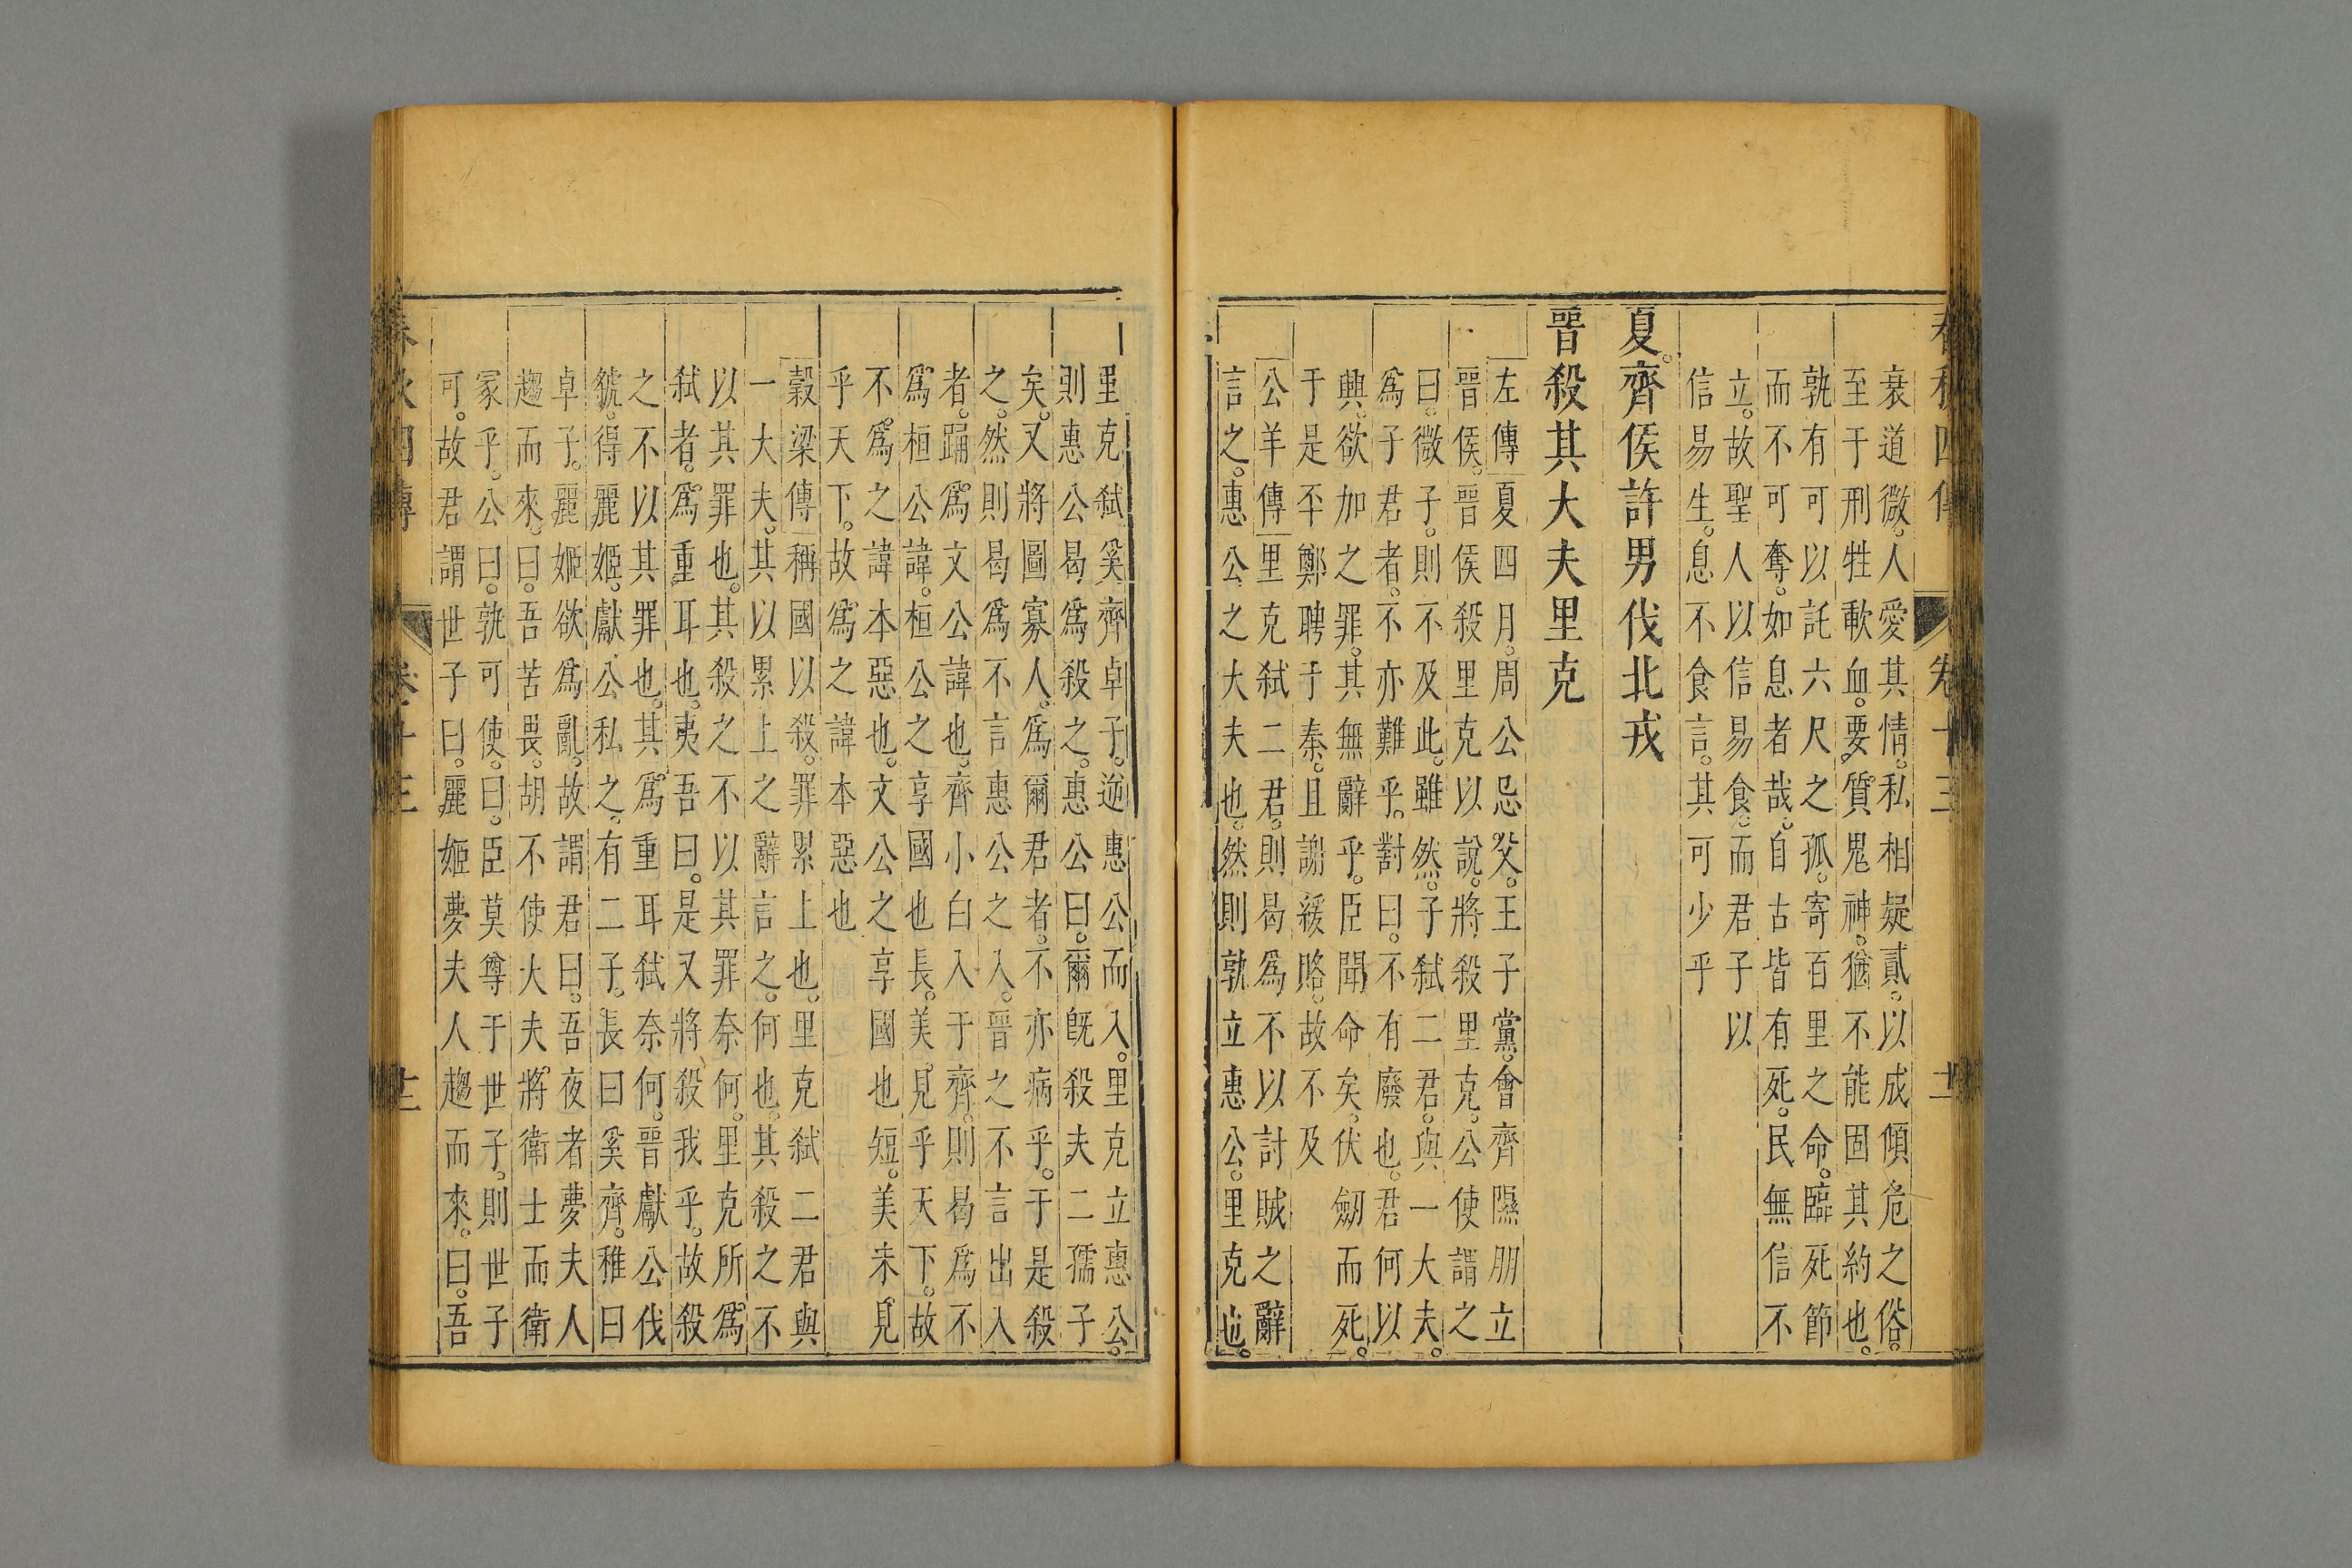 春秋四傳 卷十三
衰道微。人愛其情。私相疑貳。以成傾危之俗。
至于刑牲歃血。要質鬼神。猶不能固其約也。
孰有可以託六尺之孤。寄百里之命。臨死節
而不可奪。如息者哉。自古皆有死。民無信不
立。故聖人以信易食。而君子以
信易生。息不食言。其可少乎
夏。齊侯許男伐北戎
晉殺其大夫里克
左傳夏四月。周公忌父。王子黨。會齊隰朋立
晉侯。晉侯殺里克以說。將殺里克。公使謂之
曰。微子。則不及此。雖然。子弒二君。與一大夫。
爲子君者。不亦難乎。對曰。不有廢也。君何以
興。欲加之罪。其無辭乎。臣聞命矣。伏劒而死。
于是丕鄭聘于秦。且謝緩賂。故不及
公羊傳里克弒二君。則曷爲不以討賊之辭
言之。惠公之大夫也。然則孰立惠公。里克也。
里克弒奚齊卓子。逆惠公而入。里克立惠公。
則惠公曷爲殺之。惠公曰。爾旣殺夫二孺子
矣。又將圖寡人。爲爾君者。不亦病乎。于是殺
之。然則曷爲不言惠公之入。晉之不言出入
者。踊爲文公諱也。齊小白入于齊。則曷爲不
爲桓公諱。桓公之享國也長。美見乎天下。故
不爲之諱本惡也。文公之享國也短。美未見
乎天下。故爲之諱本惡也
穀梁傳稱國以殺。罪累上也。里克弒二君與
一大夫。其以累上之辭言之。何也。其殺之不
以其罪也。其殺之不以其罪奈何。里克所爲
弒者。爲重耳也。夷吾曰。是又將殺我乎。故殺
之不以其罪也。其爲重耳弒奈何。晉獻公伐
虢。得麗姬。獻公私之。有二子。長曰奚齊。稚曰
卓子。麗姬欲爲亂。故謂君曰。吾夜者夢夫人
趨而來。曰。吾苦畏。胡不使大夫。將衛士而衛
冢乎。公曰。孰可使。曰。臣莫尊于世子。則世子
可。故君謂世子曰。麗姬夢夫人趨而來。曰。吾
春秋四傳 卷十三 十二